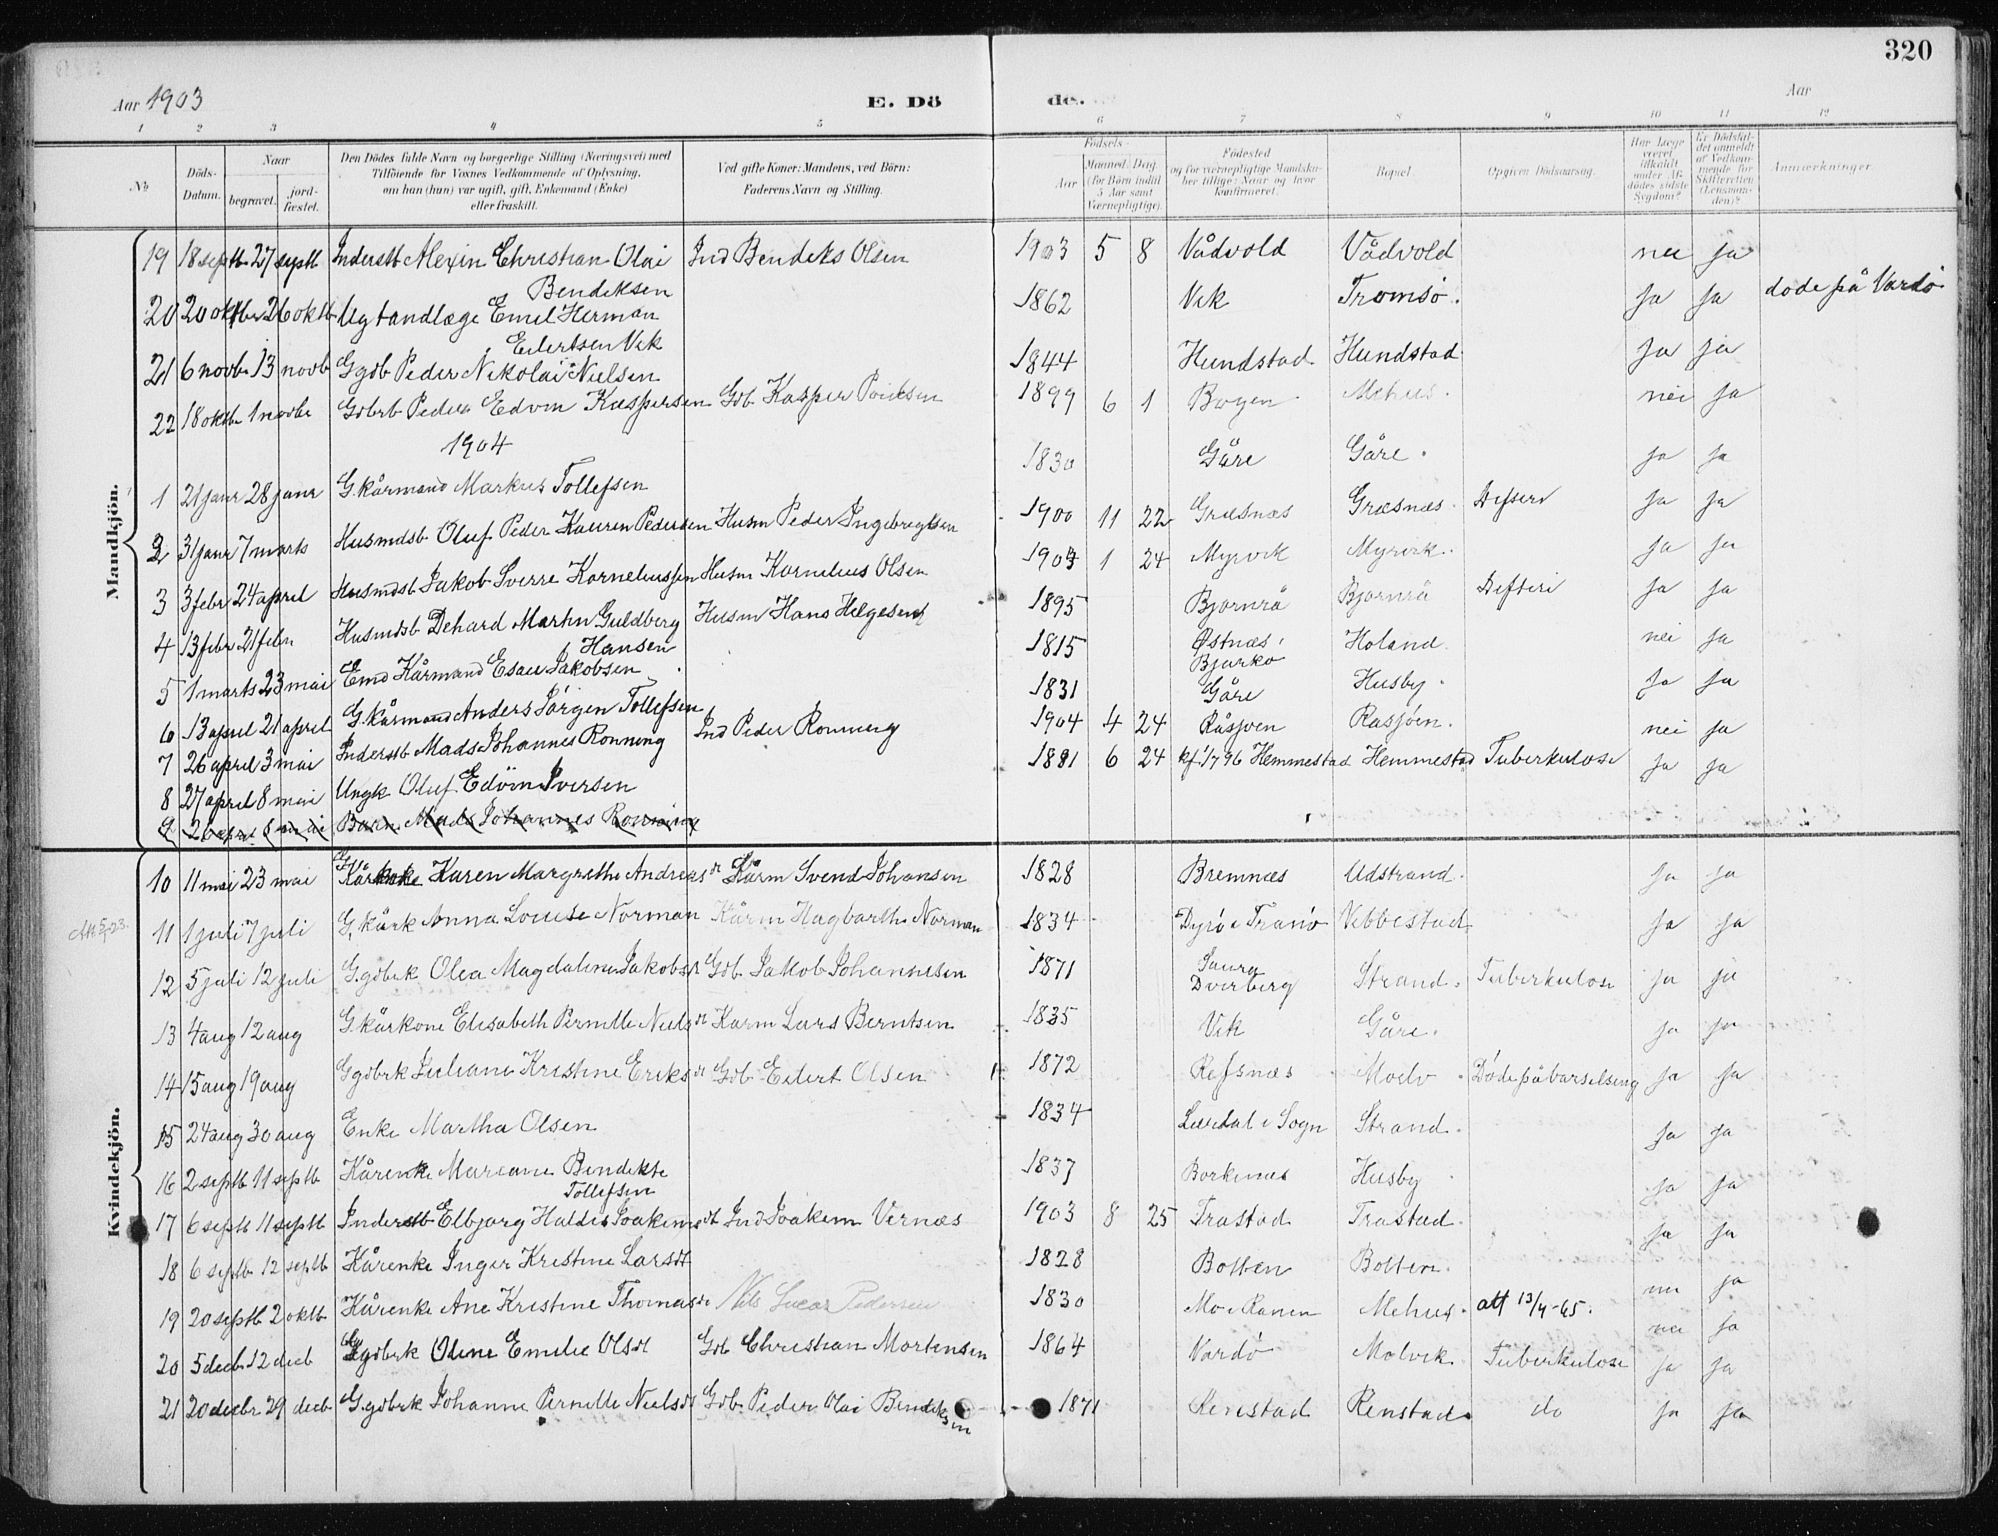 320
Aar 1903 E. Dö de. Aar
1 2 3 4 5 6 7 8 9 10 11 12
No
Döds-Datum.
Naar
begravet.
jord-fæstet.
Den Dödes fulde Navn og borgerlige Stilling (Næringsvei) med
Tilföiende for Voxnes Vedkommende af Oplysning,
om han (hun) var ugift, gift, Enkemand (Enke)
eller fraskilt.
Ved gifte Koner: Mandens, ved Börn:
Faderens Navn og Stilling.
Födsels-
Aar
Maaned. Dag.
(for Börn indtil
5 Aar samt
Værnepligtige).
Födested
og for værnepligtige Mandska-
ber tillige: Naar og hvor
konfirmeret.
Bopæl.
Opgiven Dödsaarsag.
Har Læge
været
tilkaldt
under Af-
dödes sidste
Sygdom?
Er Dödsfal-
det anmeldt
af Vedkom-
mende for
Skifteretten
(Lensman-
den)?
Anmærkninger.
Mandkjön.
19 18 septb 27 septb Inderstb Alexin Christian Olai Ind Bendiks Olsen 1903 5 8 Vådvold Vådvold nei ja
Bendiksen
20 20 oktbr 26 oktb Ug tandlæge Emil Herman 1862 Vik Tromsø. ja ja døde på Vardø
Eilertsen Vik
21 6 novb 13 novb Ggdb Peder Nikolai Nielsen 1844 Hundstad Hundstad ja ja
22 18 oktb 1 novbr Gdbrb Peder Edvin Kaspersen Gdb Kasper 1899 6 1 Bogen Mehus. nei ja
1904
1 21 janr 28 janr G. kårmand Markus Tollefsen 1830 Gåre Gåre. ja ja
2 31 janr 7 marts Husmdsb Oluf Peder Kauren Pedersen Husm Peder Ingebregtsen 1900 11 22 Græsnæs Græsnæs Difteri ja ja
3 3 febr 24 april Husmdsb Jakob Sverre Korneliussen Husm Kornelius Olsen 1903 1 24 Myrvik Myrvik. ja ja
4 13 febr 21 febr Husmdsb Dehard Martin Guldberg Husm Hans Helgesen 1895 Bjornrå Bjornrå Difteri ja ja
Hansen
5 1 marts 23 mai Emd Kårmand Esau Jakobsen 1815 Østnæs, Holand. nei ja
Bjarkø
6 13 april 21 april G. kårmand Anders Jørgen Tollefsen 1831 Gåre Husby. ja ja
7 26 april 3 mai Inderstb Mads Johannes Ronning Ind Peder Ronning 1904 4 24 Råsjoen Rasjøen. nei ja
8 27 april 8 mai Ungk Oluf Edvin Iversen 1881 6 24 kf 1/7 96 Hemmestad Hemmestad Tuberkulose ja ja
9 26 april 8 mai Barn Mads Johannes Ronning
Kvindekjön.
10 11 mai 23 mai G Kårkone Karen Margrethe Andreas dt Kårm Svend Johansen 1828 Bremnæs Udstrand. ja ja
11 1 juli 7 juli G, kårk Anna Louise Norman Kårm Hagbarth Norman 1834 Dyrø i Tranø Vebbestad ja ja
12 5 juli 12 juli G. gdbrk Olea Magdalene Jakobsdt Gdb. Jakob Johannesen 1871 Saura Strand. Tuberkulose ja ja
Dverberg
13 4 aug 12 aug G. kårkone Elisabeth Pernille Nielsdt Karm Lars Berntsen 1835 Vik Gåre. ja ja
14 15 aug 19 aug Ggdbrk Juliane Kristine Eriksdt Gdb Eilert Olsen 1872 Refsnæs Moelv Døde på barselseng ja ja
15 24 aug 30 aug Enke Martha Olsen 1834 Lærdal i Sogn Strand. ja ja
16 2 septb 11 septb Kårenke Mariane Bendikte 1837 Borkenæs Husby ja ja
Tollefsen
17 6 septb 11 septb Inderstb Elbjorg Haldis Joakimsdt Ind Joakem Vernæs 1903 8 25 Trastad Trastad. ja ja
18 6 septb 12 septb Kårenke Inger Kristine Larsdt 1828 Botten Botten. nei ja
19 20 septb 2 oktb Kårenke Ane Kristine Thomasdt Nils Pedersen 1830 Mo i Ranen Mehus. att 13/4-65. nei ja
20 5 decb 12 decb Ggdbrk Oline Emilie Olsdt Gdb Christian Mortensen 1864 Vardø Molvik. Tuberkulose ja ja
21 20 decbr 29 decb G. gdbrk Johanne Pernille Nielsdt Gdb. Peder Olai Bendiksen 1871 Renstad Renstad do ja ja